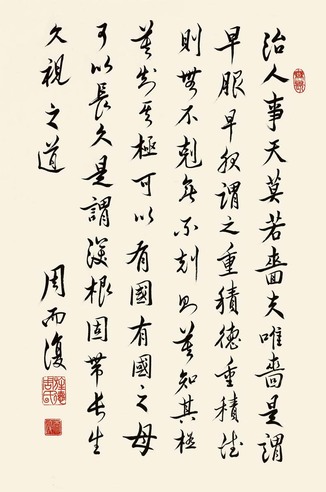 治人事天莫若嗇夫唯嗇是謂
早服早服謂之重積德重積德
則無不剋無不剋則莫知其極
莫知其極可以有國有國之母
可以長久是謂深根固帶長生
久視之道
周而復